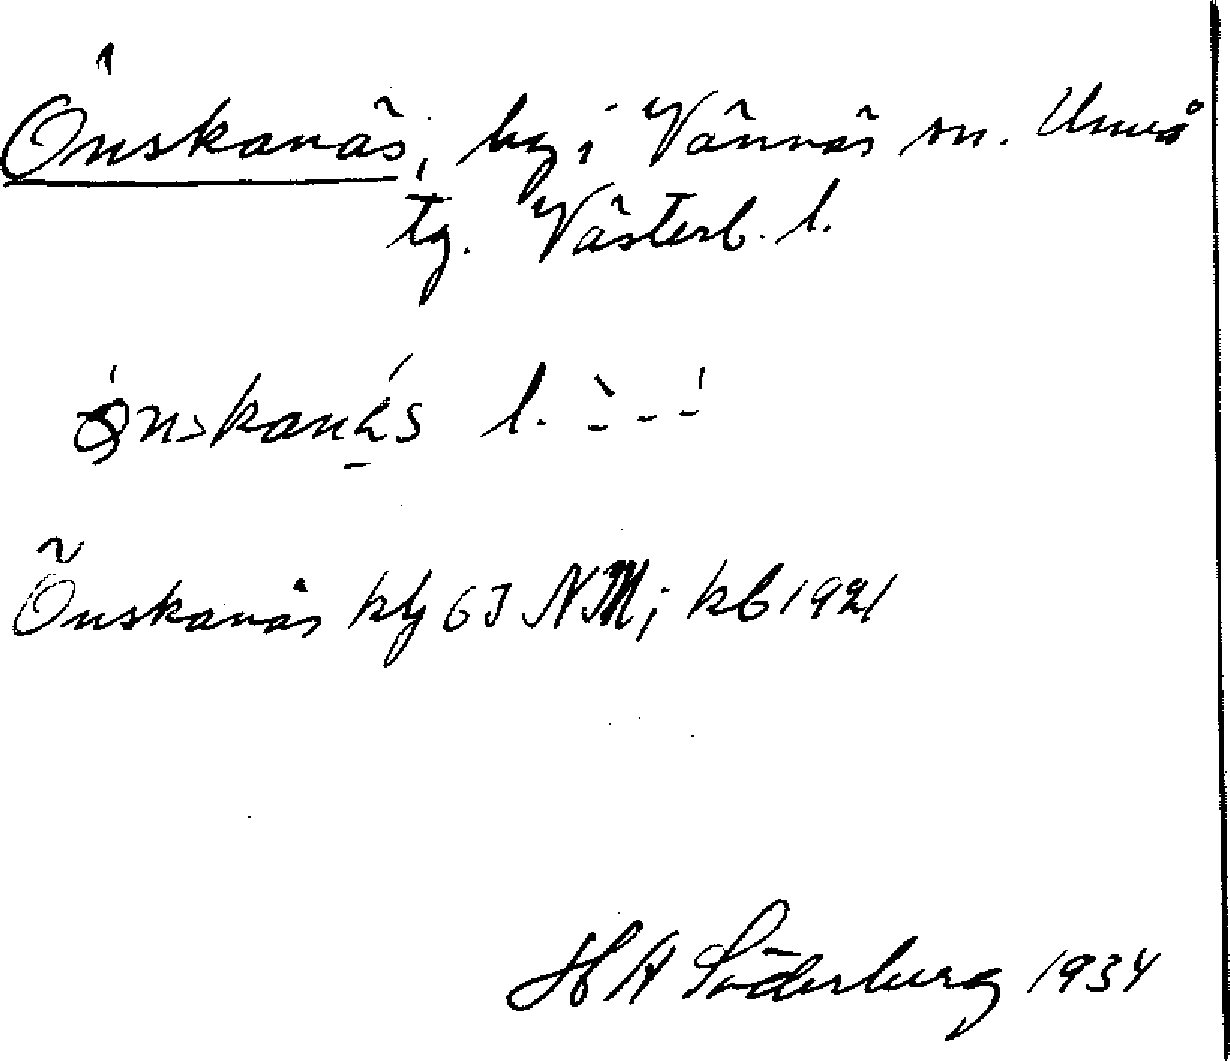 Önskanäs, by i Vännäs sn. Umeå
tg. Västerb. l.
l.
Önskanäs kbg 65 NM; kb 1921
H A Söderberg 1934